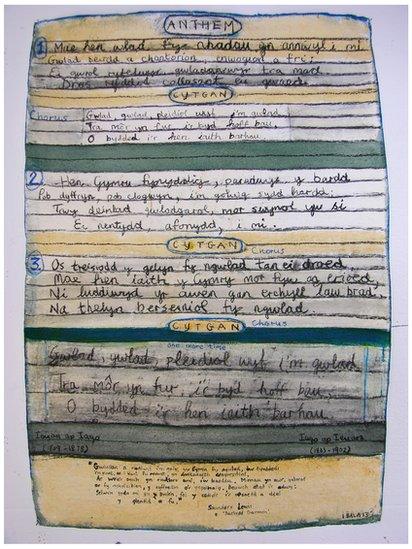 ANTHEM
1) Mae hen wlad fy nhadau yn annwyl i mi
Gwlad beirdd a chantorion, enwogion o fri;
Ei gwrol ryfelwyr, gwladgarwyr tra mad
Dros ryddid collasant eu gwaed.
CYTGAN
Chorus Gwlad, gwlad, pleidiol wyf i'm gwlad
Tra môr yn fur i'r byd hoff bau,
O bydded i'r hen iaith barhau
2. Hen Gymru fynyddig, paradwys y bardd
Pob dyffryn, pob clogwyn, i'm golwg sydd hardd;
Trwy deimlad gwladgarol, mor swynol yw si
Ei nentydd, afonydd, i mi.
CYTGAN Chorus
3. Os treisiodd y gelyn fy ngwlad tan ei droed,
Mae hen iaith y Cymry mor fyw ag erioed,
Ni luddiwyd yr awen gan erchyll law brad,
Na thelyn berseiniol fy ngwlad.
CYTGAN Chorus
one more time
Gwlad, gwlad, pleidiol wyf i'm gwlad
Tra môr yn fur i'r byd hoff bau,
O bydded i'r hen iaith barhau
Ieuan ap Iago Iago ap Ieuan
(1809-1878) (1833-1902)
Saunders Lewis